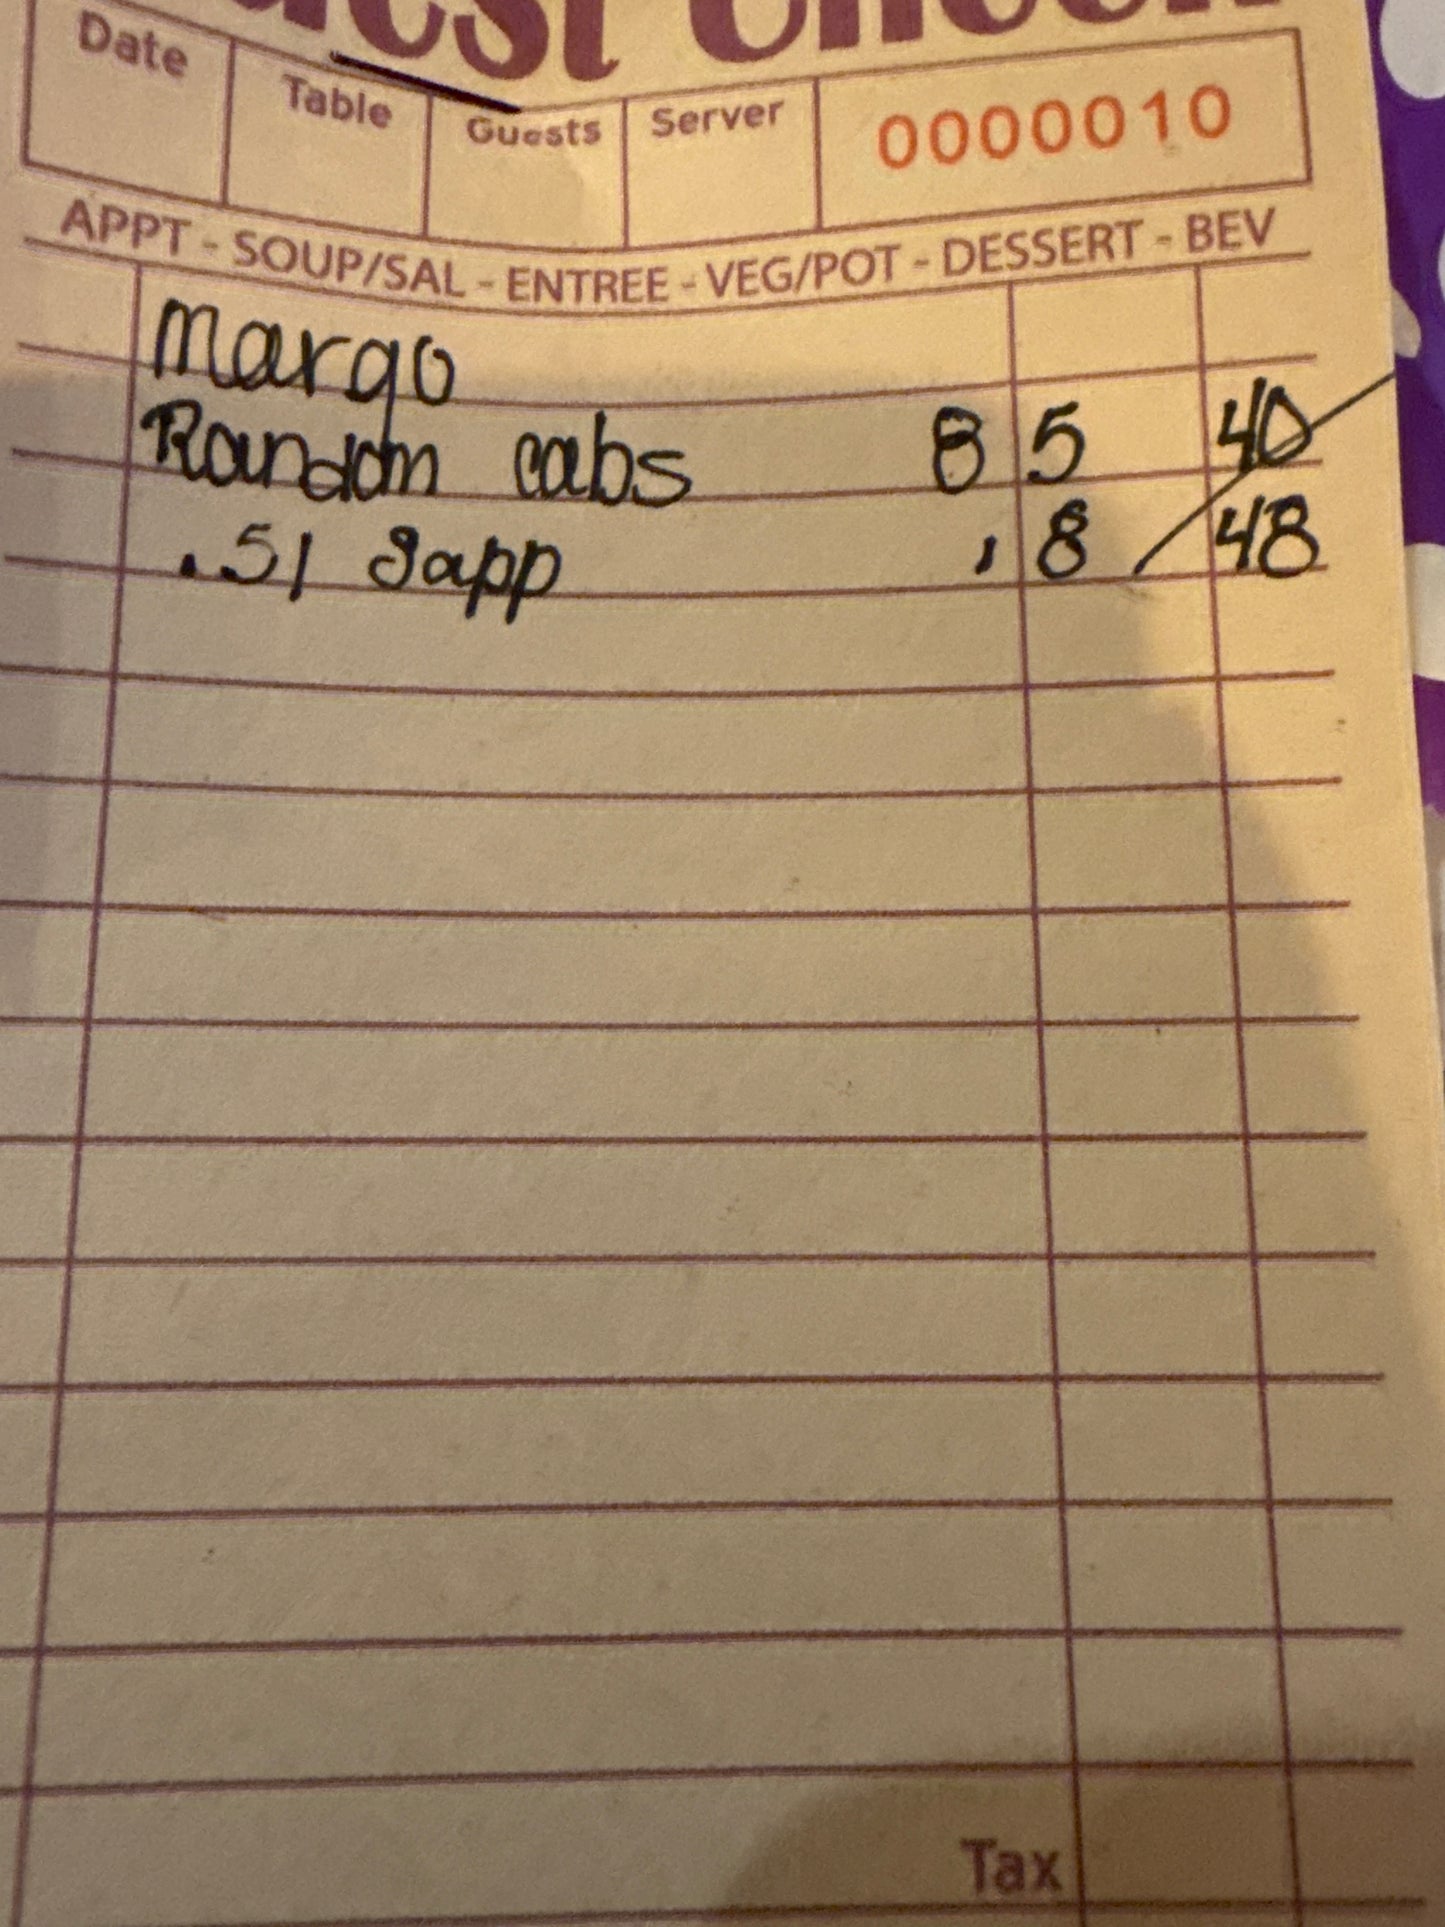 Guest Check
Date Table Guests Server 0000010
APPT - SOUP/SAL - ENTREE - VEG/POT - DESSERT - BEV
Margo
Random cabs 8 5 40
.51 Sapp , 8 48
Tax